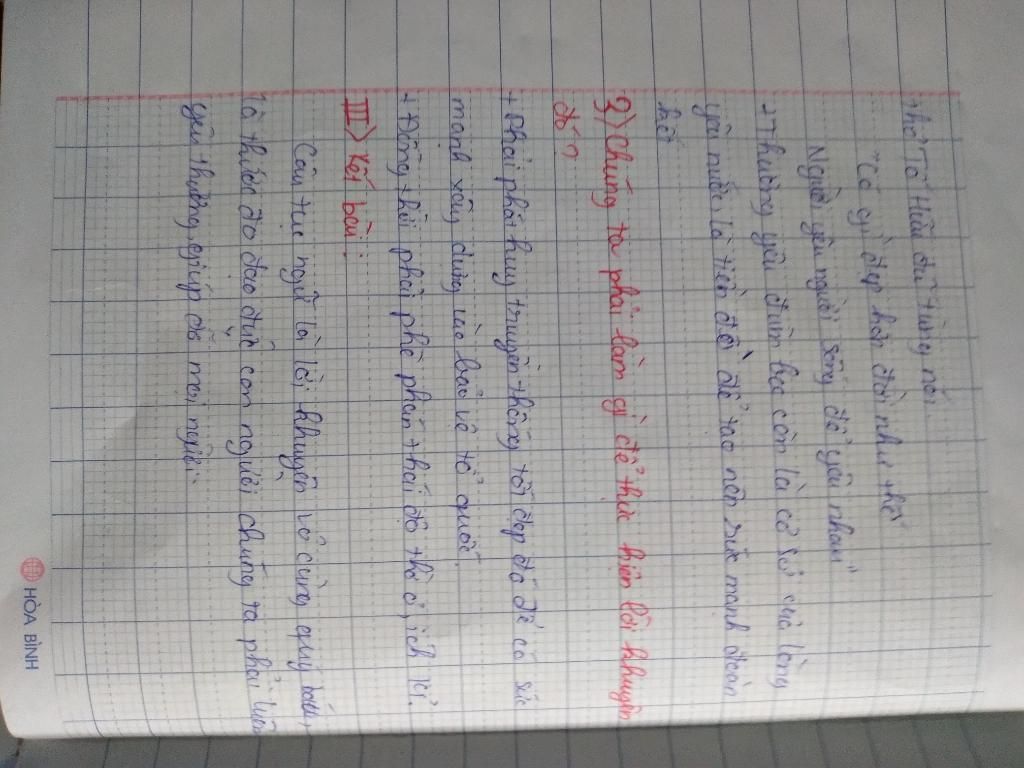 thơ Tố Hữu đã từng nói
"Có gì đẹp hơn đời như thế
Người yêu người sống để yêu nhau"
+ Thương yêu đùm bọc còn là cơ sở của lòng
yêu nước là tiền đề để tạo nên sức mạnh đoàn
kết
2) Chúng ta phải làm gì để thực hiện lời khuyên
đó?
+ Phải phát huy truyền thống tốt đẹp đó để có sức
mạnh xây dựng vào bảo vệ tổ quốc.
+ Đồng thời phải phê phán thái độ thờ ơ, ích kỉ.
III) Kết bài:
Câu tục ngữ là lời khuyên vô cùng quý báu,
là thước đo đạo đức con người chúng ta phải luôn
yêu thương, giúp đỡ mọi người.
HÒA BÌNH